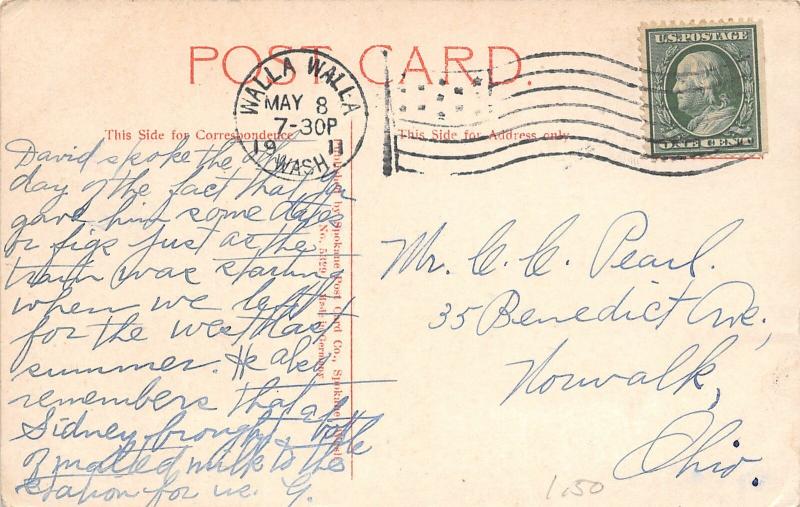 POST CARD.
U.S. POSTAGE
ONE CENT
WALLA WALLA
MAY 8
7-30P
1911
WASH.
This Side for Correspondence
This Side for Address only
David spoke the other
day of the fact that you
gave him some dates
or figs just as the
train was starting
when we left
for the west last
summer. He also
remembers that
Sidney brought a bottle
of malted milk to the
station for us. G.
by Spokane Post Card Co., Spokane
No. 5329 Made in Germany
Mr. C. C. Pearl.
35 Benedict Ave,
Norwalk,
Ohio.
1.50